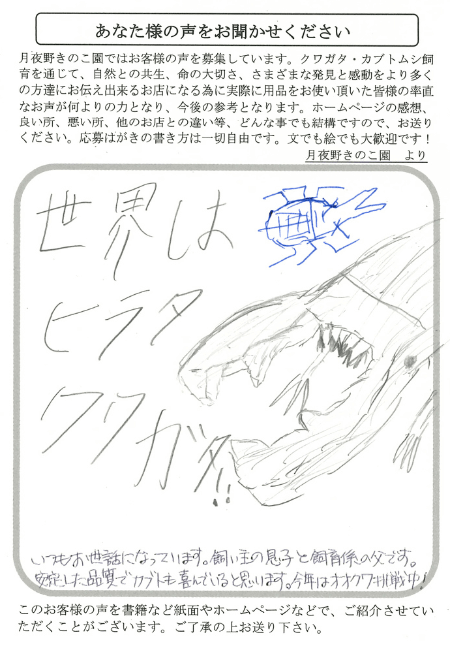 あなた様の声をお聞かせください
月夜野きのこ園ではお客様の声を募集しています。クワガタ・カブトムシ飼
育を通じて、自然との共生、命の大切さ、さまざまな発見と感動をより多く
の方達にお伝え出来るお店になる為に実際に用品をお使い頂いた皆様の率直
なお声が何よりの力となり、今後の参考となります。ホームページの感想、
良い所、悪い所、他のお店との違い等、どんな事でも結構ですので、お送り
ください。応募はがきの書き方は一切自由です。文でも絵でも大歓迎です！
月夜野きのこ園　より
世界は
ヒラタ
クワガタ!!
いつもお世話になっています。飼い主の息子と飼育係の父です。
安定した品質でカブトも喜んでいると思います。今年はオオクワ挑戦中!
このお客様の声を書籍など紙面やホームページなどで、ご紹介させてい
ただくことがございます。ご了承の上お送り下さい。